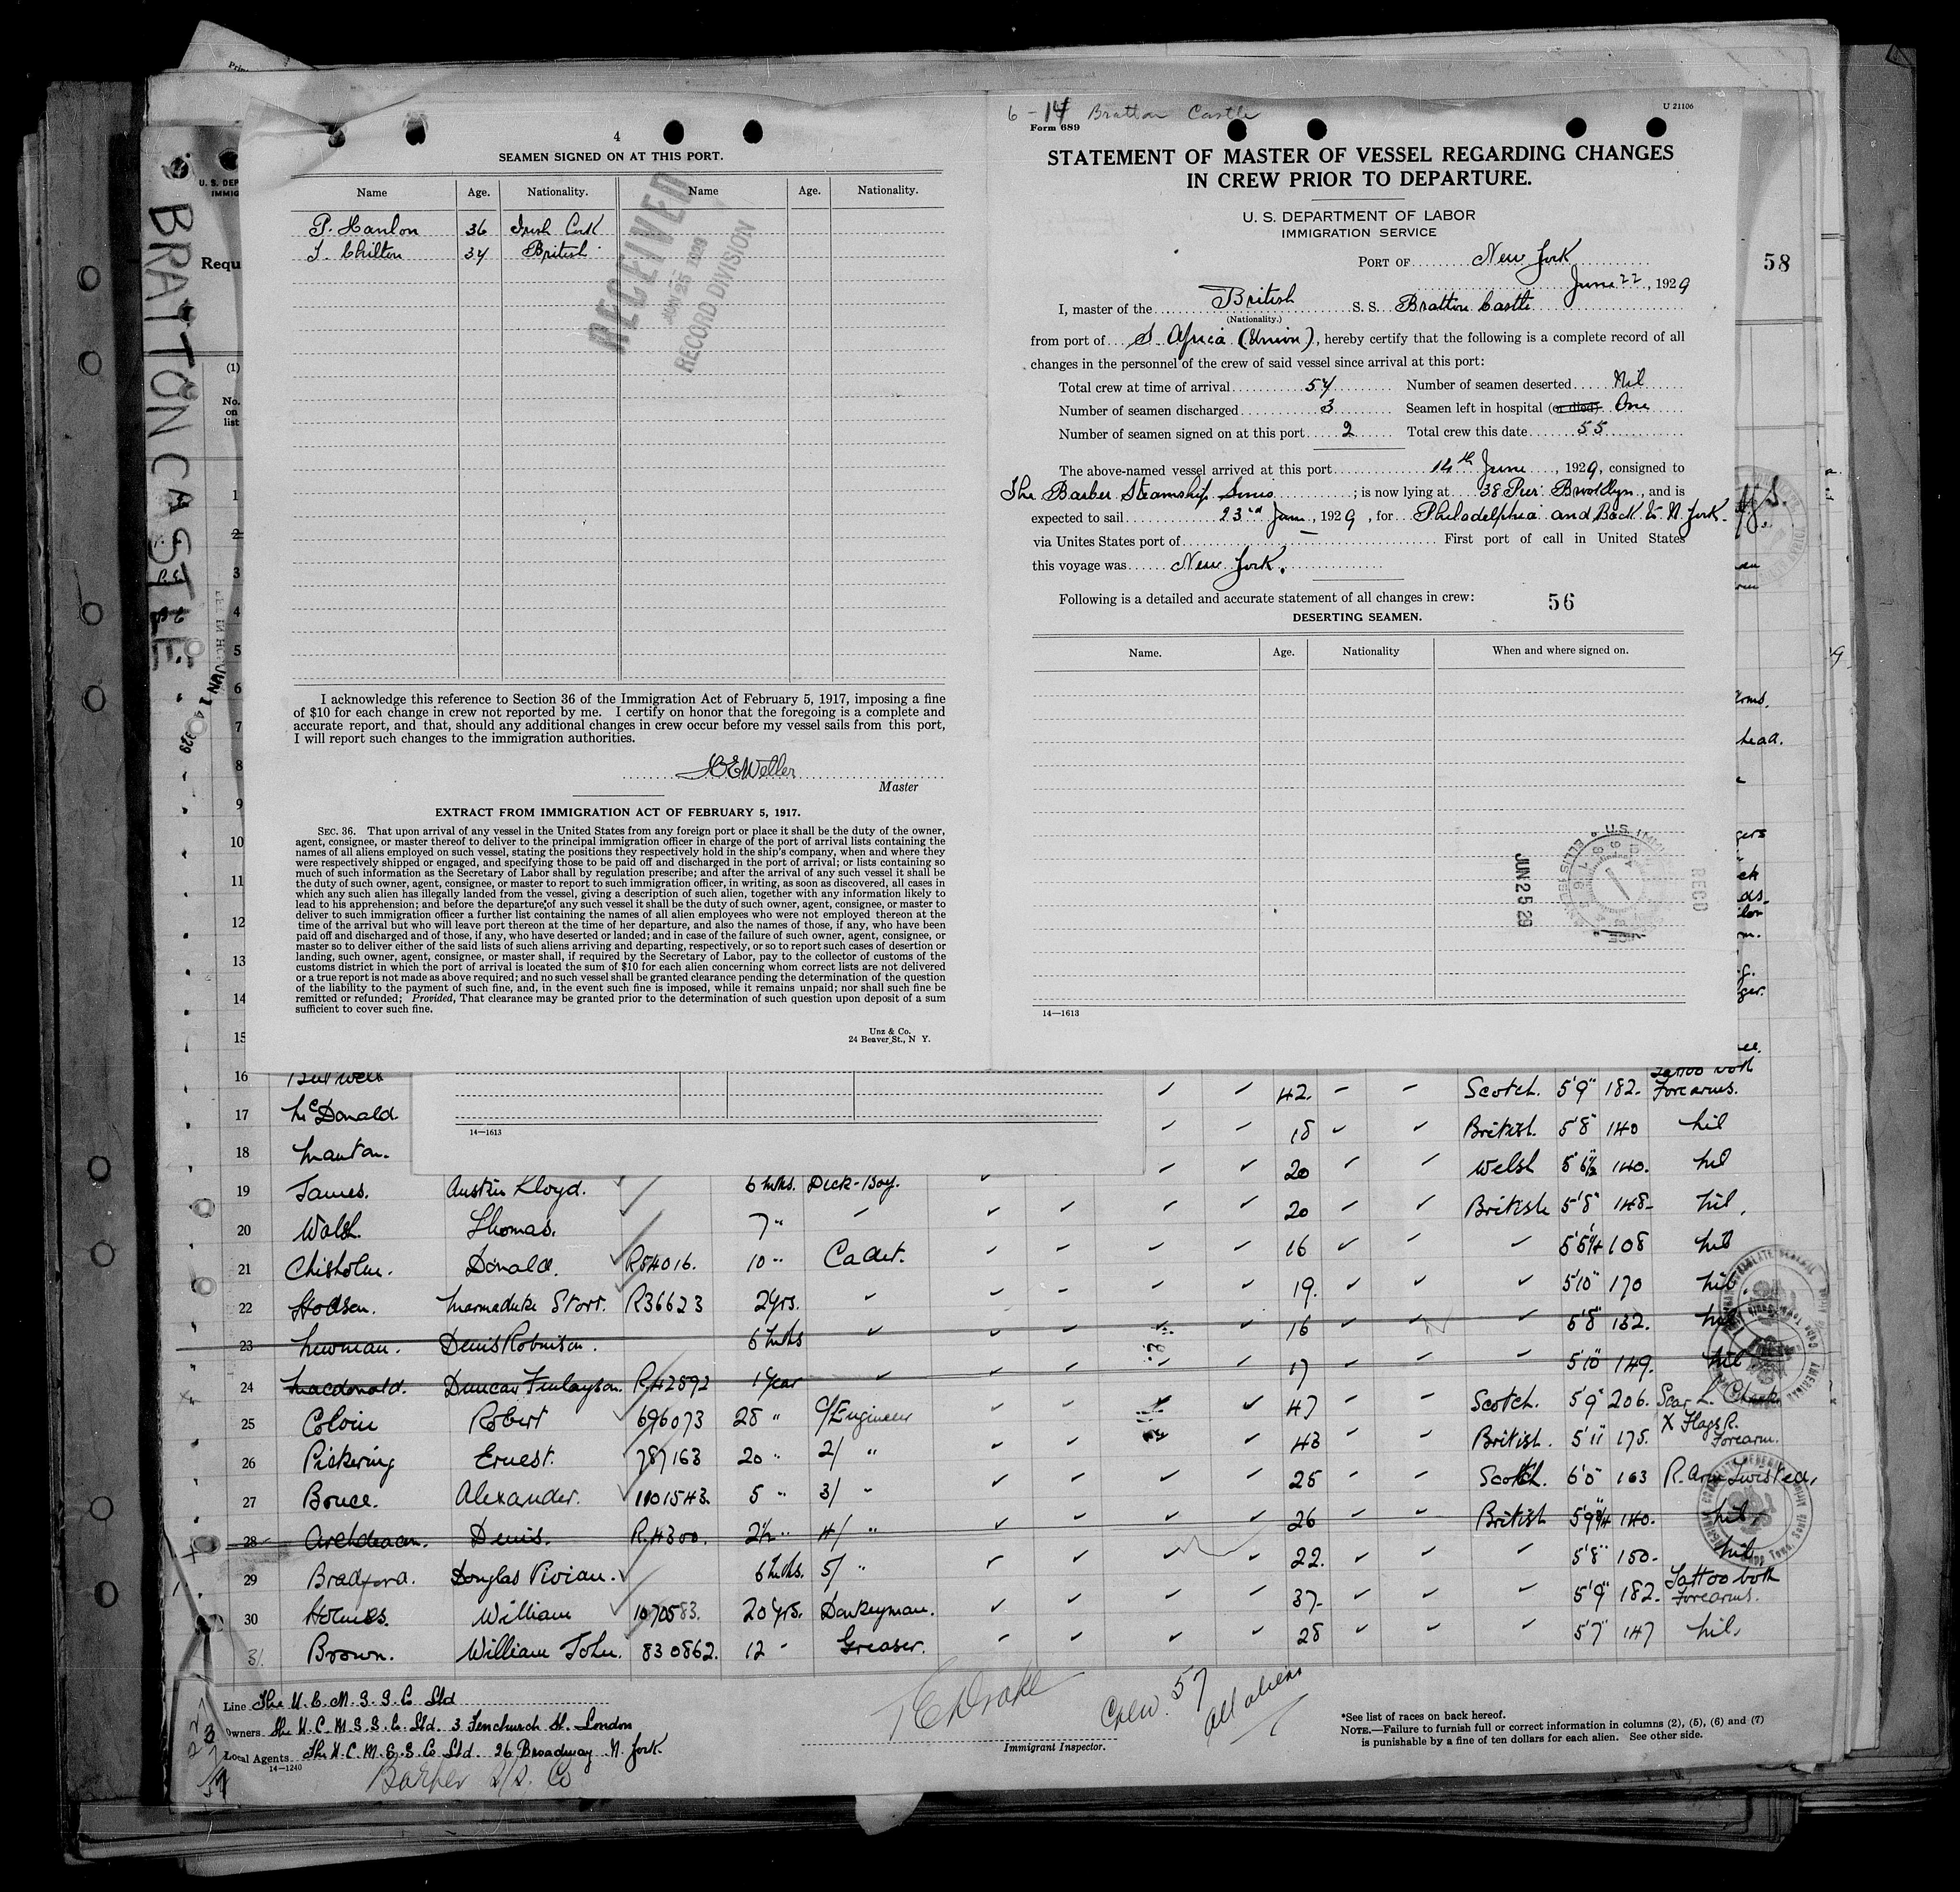 BRATTON CASTLE
U. S. DEP
IMMIG
Requ
(1)
No.
on
list
4
SEAMEN SIGNED ON AT THIS PORT.
Name Age. Nationality. Name Age. Nationality.
P. Hanlon 36 Irish Cork
J. Chilton 34 British
RECEIVED
JUN 25 1929
RECORD DIVISION
I acknowledge this reference to Section 36 of the Immigration Act of February 5, 1917, imposing a fine
of $10 for each change in crew not reported by me. I certify on honor that the foregoing is a complete and
accurate report, and that, should any additional changes in crew occur before my vessel sails from this port,
I will report such changes to the immigration authorities.
Weller
Master
EXTRACT FROM IMMIGRATION ACT OF FEBRUARY 5, 1917.
SEC. 36. That upon arrival of any vessel in the United States from any foreign port or place it shall be the duty of the owner,
agent, consignee, or master thereof to deliver to the principal immigration officer in charge of the port of arrival lists containing the
names of all aliens employed on such vessel, stating the positions they respectively hold in the ship's company, when and where they
were respectively shipped or engaged, and specifying those to be paid off and discharged in the port of arrival; or lists containing so
much of such information as the Secretary of Labor shall by regulation prescribe; and after the arrival of any such vessel it shall be
the duty of such owner, agent, consignee, or master to report to such immigration officer, in writing, as soon as discovered, all cases in
which any such alien has illegally landed from the vessel, giving a description of such alien, together with any information likely to
lead to his apprehension; and before the departure of any such vessel it shall be the duty of such owner, agent, consignee, or master to
deliver to such immigration officer a further list containing the names of all alien employees who were not employed thereon at the
time of the arrival but who will leave port thereon at the time of her departure, and also the names of those, if any, who have been
paid off and discharged and of those, if any, who have deserted or landed; and in case of the failure of such owner, agent, consignee, or
master so to deliver either of the said lists of such aliens arriving and departing, respectively, or so to report such cases of desertion or
landing, such owner, agent, consignee, or master shall, if required by the Secretary of Labor, pay to the collector of customs of the
customs district in which the port of arrival is located the sum of $10 for each alien concerning whom correct lists are not delivered
or a true report is not made as above required; and no such vessel shall be granted clearance pending the determination of the question
of the liability to the payment of such fine, and, in the event such fine is imposed, while it remains unpaid; nor shall such fine be
remitted or refunded; Provided, That clearance may be granted prior to the determination of such question upon deposit of a sum
sufficient to cover such fine.
Unz & Co.
24 Beaver St., N Y.
6-14 Bratton Castle
U 21106
Form 689
STATEMENT OF MASTER OF VESSEL REGARDING CHANGES
IN CREW PRIOR TO DEPARTURE.
U. S. DEPARTMENT OF LABOR
IMMIGRATION SERVICE
PORT OF New York
June 22, 1929
I, master of the British S. S. Bratton Castle
(Nationality.)
from port of S. Africa (Union), hereby certify that the following is a complete record of all
changes in the personnel of the crew of said vessel since arrival at this port:
Total crew at time of arrival 57 Number of seamen deserted Nil
Number of seamen discharged 3 Seamen left in hospital (or died) One
Number of seamen signed on at this port 2 Total crew this date 55
The above-named vessel arrived at this port 14th June, 1929, consigned to
The Barber Steamship Lines; is now lying at 38 Pier Brooklyn, and is
expected to sail 23rd June, 1929, for Philadelphia and Back to N. York.
via Unites States port of First port of call in United States
this voyage was New York.
Following is a detailed and accurate statement of all changes in crew: 56
DESERTING SEAMEN.
Name. Age. Nationality When and where signed on.
JUN 25 29
RECD
14—1613
58
1
2
3
4
5
6
7
8
9
10
11
12
13
14
15
14—1613
16 42. Scotch. 5'9" 182. Tattoo both Forearms.
17 McDonald 18 British. 5'8" 140 nil
18 Manton. 20 Welsh 5'6½ 140. nil
19 James. Austin Lloyd. 6 mths. Deck-Boy. 20 British 5'8" 148- nil.
20 Walsh. Thomas. 7 " 16 5'5¼ 108 nil
21 Chisholm. Donald. R54016. 10 " Cadet. 19. 5'10" 170 nil.
22 Hodson. Marmaduke Storr. R36623 2 Yrs. 16 5'8" 132. nil
23 Newman. Denis Robinson. 6 mths 17 5'10 149. nil
24 Macdonald. Duncan Finlayson. R42892 1 Year 47 Scotch. 5'9" 206. Scar L. Cheek
25 Colvin Robert 696073 28 " C/Engineer 43 British. 5'11 175. X Flags R. Forearm.
26 Pickering Ernest. 787163 20 " 2/ " 25 Scotch. 6'0" 163 R. Arm Twisted.
27 Bouce. Alexander. 1101543. 5 " 3/ " 26 British 5'9¾ 140. nil.
28 Archdeacon. Denis. R.4300. 2½ " 4/ " 22. 5'8" 150- nil.
29 Bradford. Douglas Vivian. 6 mths. 5/ " 37- 5'9" 182. Tattoo both Forearms.
30 Holmes. William 1070583. 20 Yrs. Donkeyman. 28 5'7" 147 nil.
31. Brown. William John. 830862. 12 - Greaser.
Line The U. C. M. S. S. Co Ltd
Owners The U. C. M. S. S. Co. Ltd. 3 Fenchurch St. London
Local Agents The U. C. M. S. S. Co Ltd 26 Broadway N. York.
14—1240
Barber S/S. Co
T E Drake
Immigrant Inspector.
Crew 57
all aliens
*See list of races on back hereof.
NOTE.—Failure to furnish full or correct information in columns (2), (5), (6) and (7)
is punishable by a fine of ten dollars for each alien. See other side.